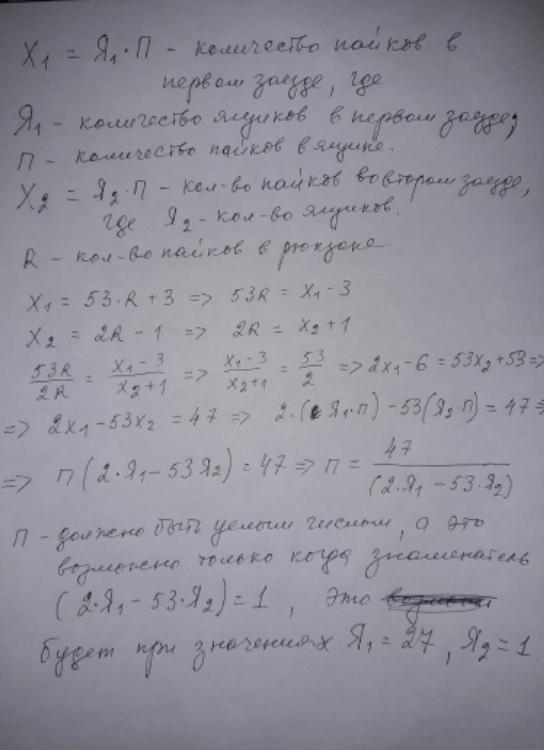 X₁ = Я₁·П - количество пайков в
первом заезде, где
Я₁ - количество ящиков в первом заезде;
П - количество пайков в ящике.
X₂ = Я₂·П - кол-во пайков во втором заезде,
где Я₂ - кол-во ящиков.
R - кол-во пайков в рюкзаке
X₁ = 53·R + 3 => 53R = X₁ - 3
X₂ = 2R - 1 => 2R = X₂ + 1
53R/2R = (X₁ - 3)/(X₂ + 1) => (X₁ - 3)/(X₂ + 1) = 53/2 => 2X₁ - 6 = 53X₂ + 53 =>
=> 2X₁ - 53X₂ = 47 => 2·(Я₁·П) - 53(Я₂·П) = 47 =>
=> П(2·Я₁ - 53Я₂) = 47 => П = 47/(2·Я₁ - 53·Я₂)
П - должно быть целым числом, а это
возможно только когда знаменатель
(2·Я₁ - 53·Я₂) = 1, это
будет при значениях Я₁ = 27, Я₂ = 1